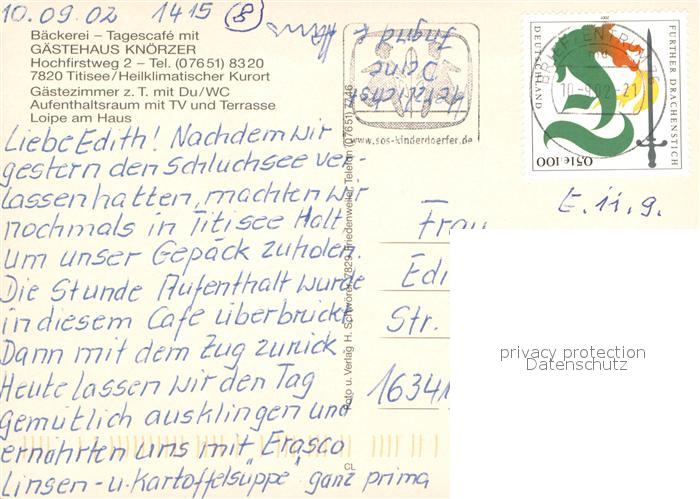 10.09.02 1415 (8)
Bäckerei – Tagescafé mit
GÄSTEHAUS KNÖRZER
Hochfirstweg 2 – Tel. (07651) 8320
7820 Titisee/Heilklimatischer Kurort
Gästezimmer z. T. mit Du/WC
Aufenthaltsraum mit TV und Terrasse
Loipe am Haus
Liebe Edith! Nachdem wir
gestern den Schluchsee ver-
lassen hatten, machten wir
nochmals in Titisee Halt
um unser Gepäck zuholen.
Die Stunde Aufenthalt wurde
in diesem Cafe überbrückt
Dann mit dem Zug zurück
Heute lassen wir den Tag
Gemütlich ausklingen und
ernährten uns mit "Erasco
Linsen-u. Kartoffelsuppe" ganz prima
Herzlichst
Deine
Ingrid
Foto u. Verlag H. Schwörer, 7829 Friedenweiler, Telefon (07651) 7246
CL
www.sos-kinderdoerfer.de
BRIEFZENTRUM
10-9.02-21
DEUTSCHLAND
FURTHER DRACHENSTICH
0,51€ 100
E. 11.9.
Frau
Edi
Str.
16341
privacy protection
Datenschutz